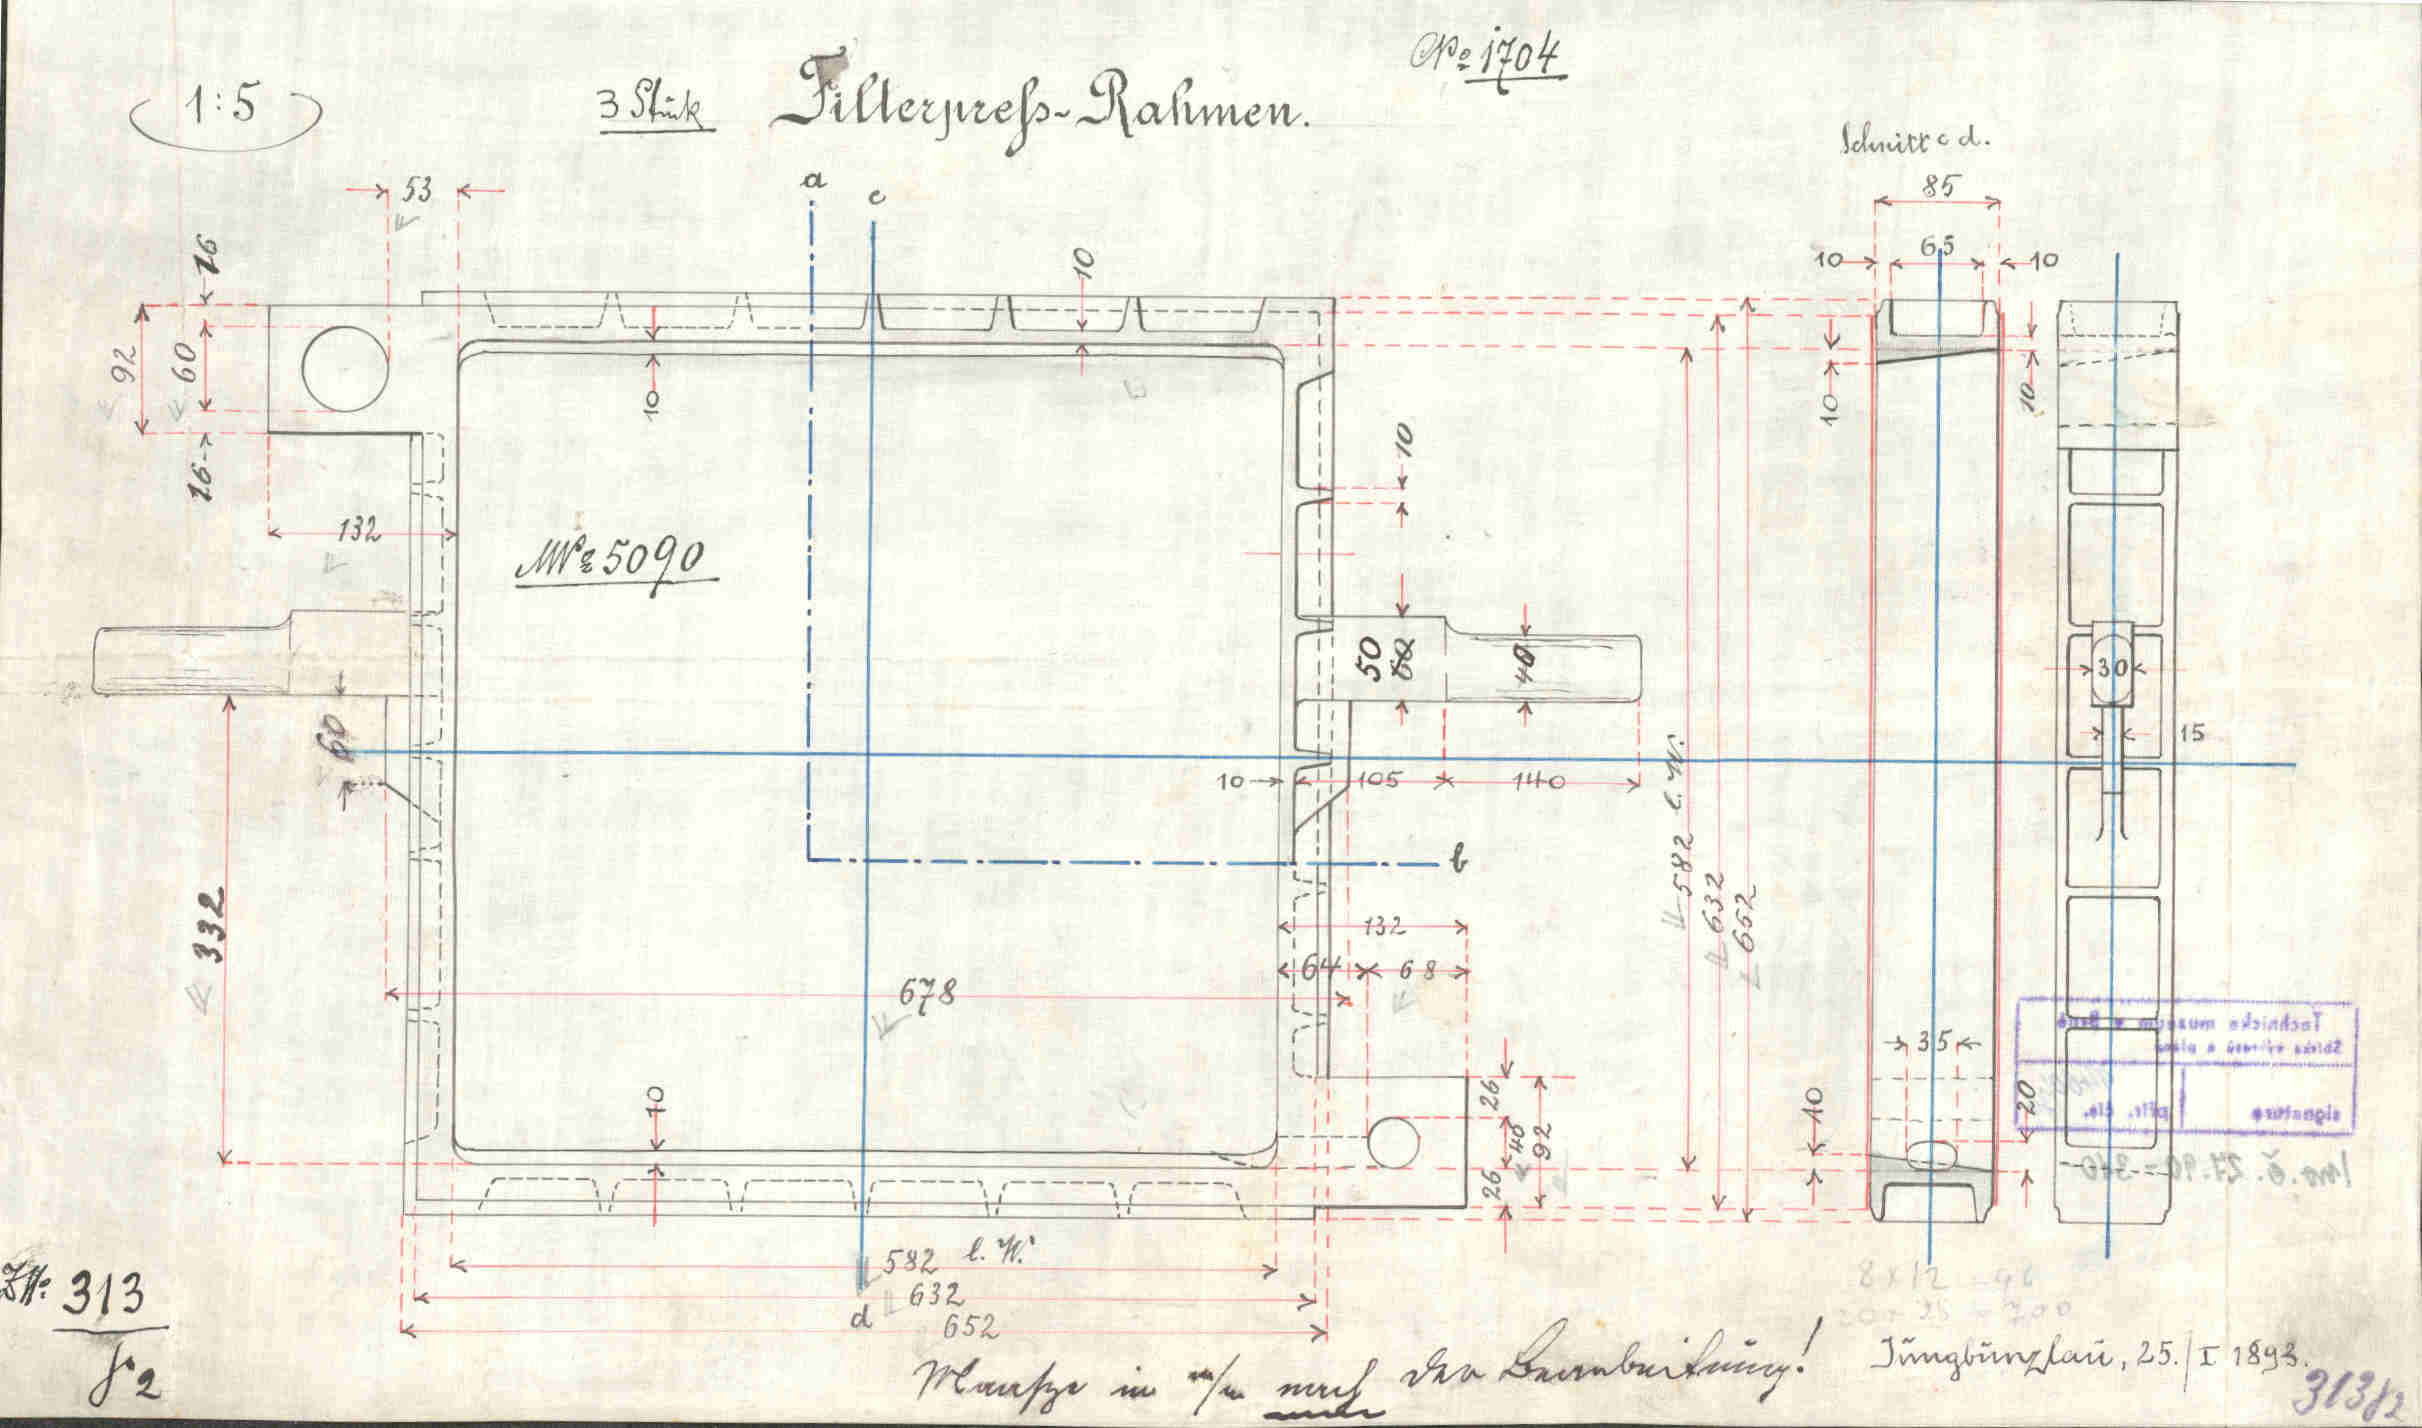 No 1704
1:5
3 Stük Filterpreſs-Rahmen.
Schnitt c d.
a
c
53
85
65
10
10
16
92
60
16
10
10
10
10
10
132
MNo 5090
50
60
40
30
15
60
10
105
140
b
332
582 l. W.
632
652
132
64
68
678
35
10
26
40
92
26
10
20
Technické muzeum v Brně
Sbírka výkresů a plánů
signatura
přír. čís.
Inv. č. 27.90-310
582 l. W.
632
652
d
8 x 12 = 96
ZN: 313
f 2
Maaße in m/m nach der Bearbeitung!
Jungbunzlau, 25./I 1893.
313f2